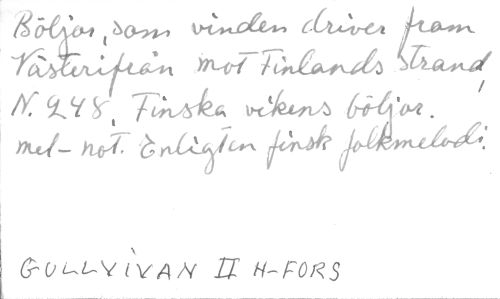 Böljor, som vinden driver fram
Västerifrån mot Finlands strand,
N. 248, Finska vikens böljor.
mel-not. Enligt en finsk folkmelodi.
GULLVIVAN II H-FORS